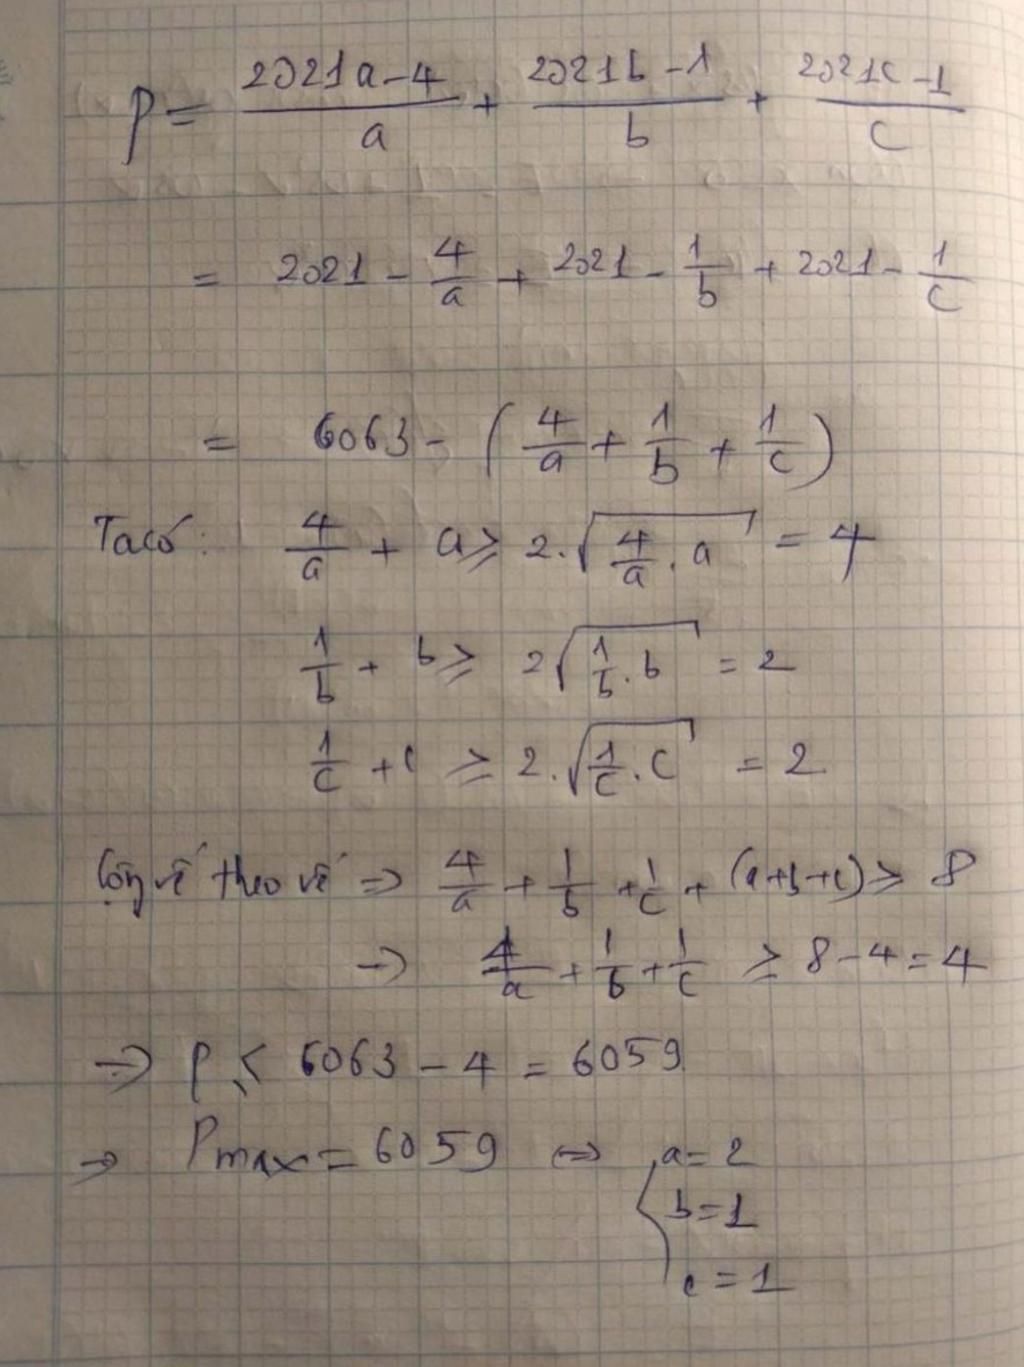 P = (2021a-4)/a + (2021b-1)/b + (2021c-1)/c
= 2021 - 4/a + 2021 - 1/b + 2021 - 1/c
= 6063 - (4/a + 1/b + 1/c)
Ta có: 4/a + a ≥ 2.√(4/a . a) = 4
1/b + b ≥ 2√(1/b . b) = 2
1/c + c ≥ 2.√(1/c . c) = 2
Cộng vế theo vế ⇒ 4/a + 1/b + 1/c + (a+b+c) ≥ 8
⇒ 4/a + 1/b + 1/c ≥ 8-4=4
⇒ P ≤ 6063 - 4 = 6059
⇒ Pmax = 6059 ⇔ { a = 2
b = 1
c = 1